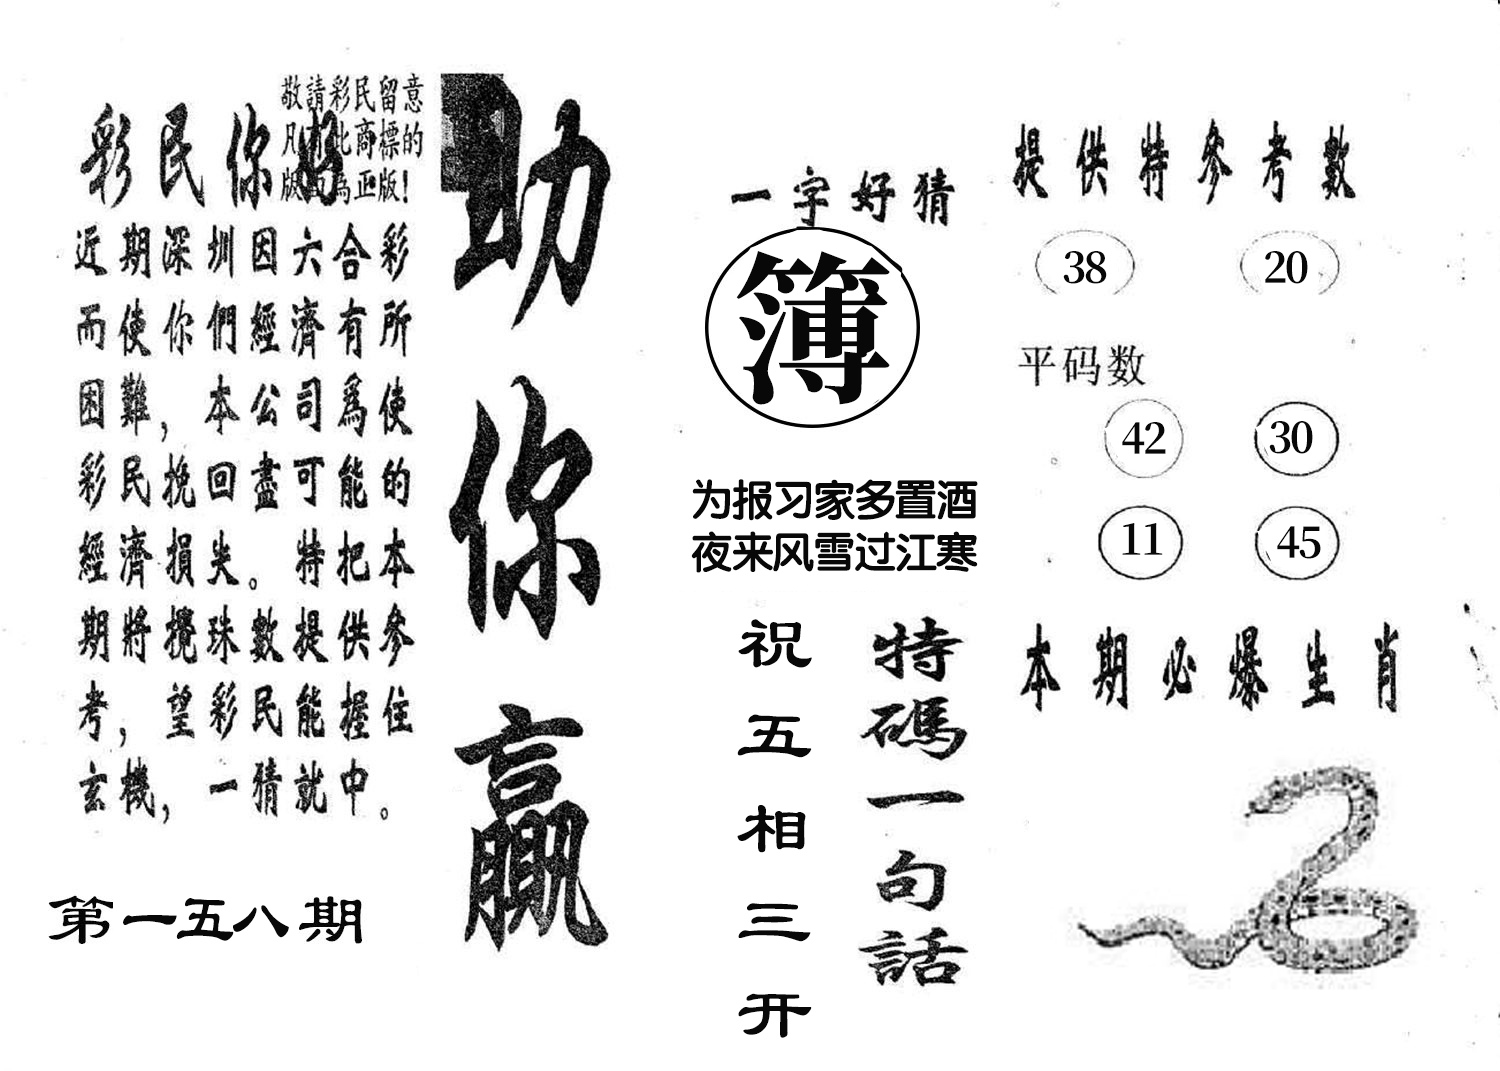 敬請彩民留意
凡有此商標的
版面為正版!
彩民你好
近期深圳因六合彩
而使你們經濟有所
困難，本公司爲使
彩民挽回盡可能的
經濟損失。特把本
期將攪珠數提供參
考，望彩民能握住
玄機，一猜就中。
第一五八期
助你贏
一字好猜
簿
为报习家多置酒
夜来风雪过江寒
特碼一句話
祝五相三开
提供特参考數
38 20
平码数
42 30
11 45
本期必爆生肖